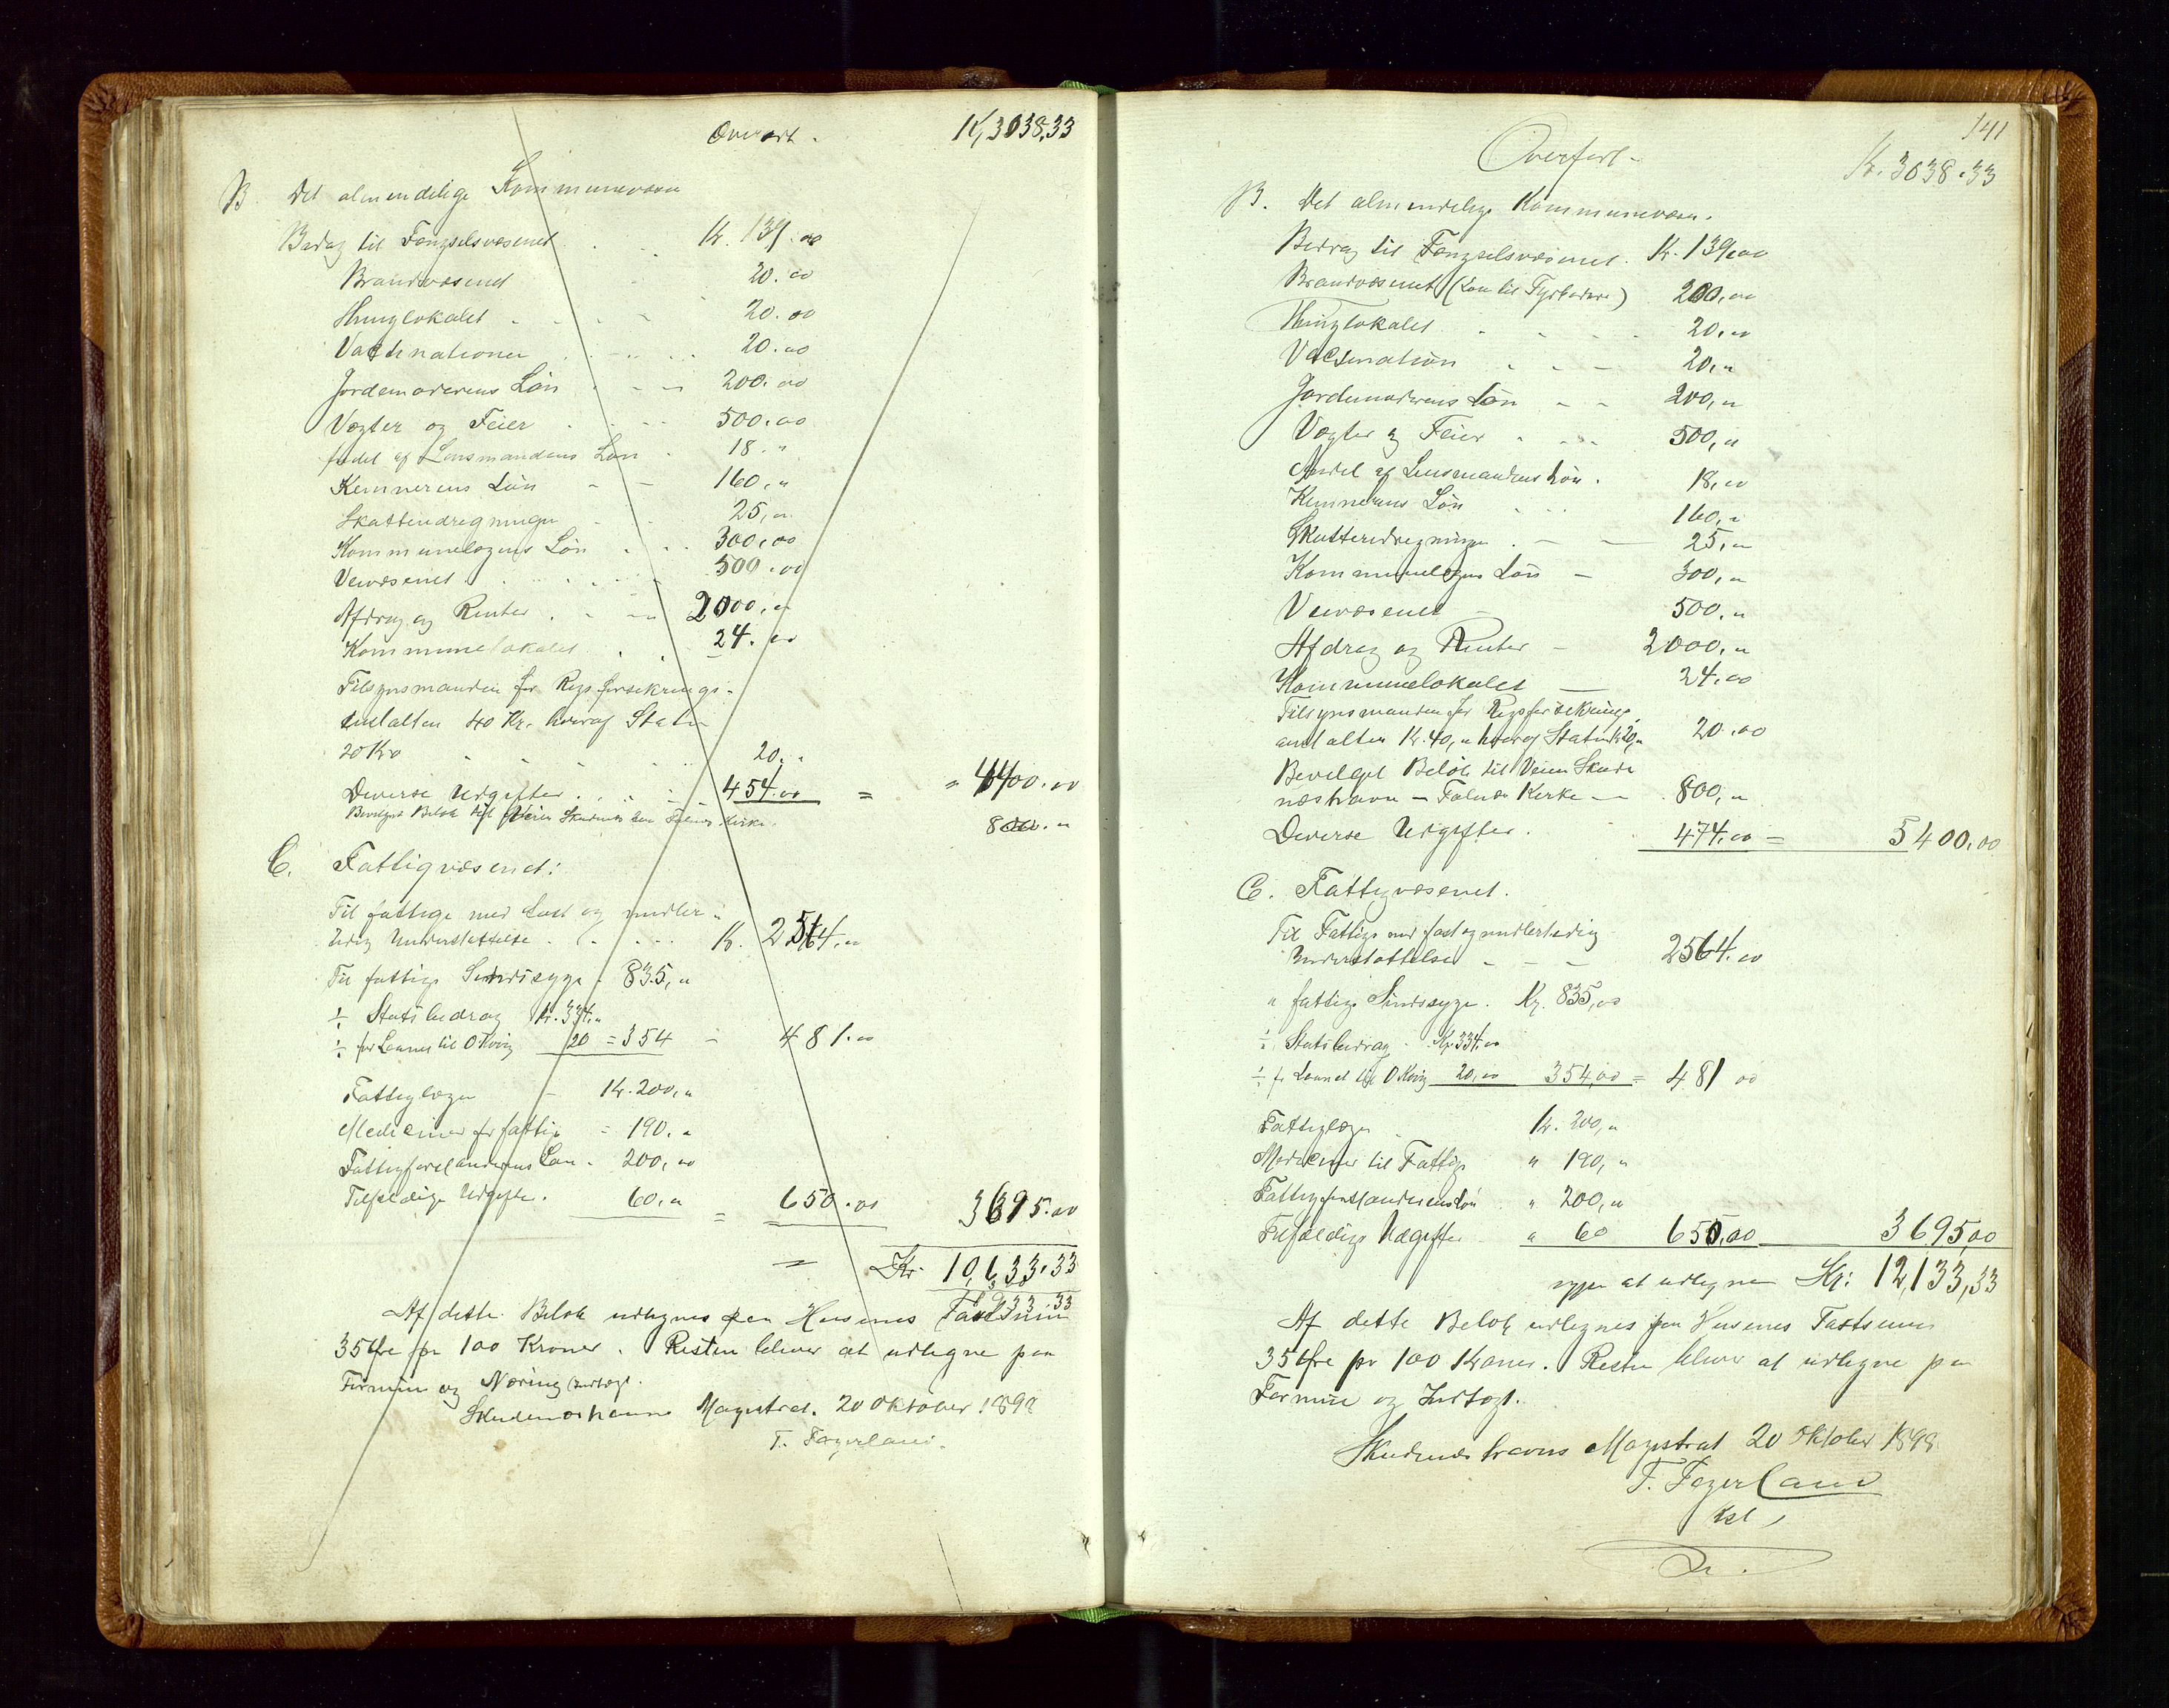 Overført. K, 3038,33
B. Det almendelige Kommunevæsen
Bidrag til Fængselsvæsenet Kr. 139.00
Brandvæsenet 20.00
Thinglokalet 20.00
Vactinationen 20.00
Jordemoderens Løn 200.00
Vægter og Feier 500.00
Andel af Lensmandens Løn 18. "
Kemnerens Løn 160, "
Skatteindregninger 25, "
Kommunelægens Løn 300,00
Veivæsenet 500.00
Afdrag og Renter 2000, "
Kommunelokalet 24.00
Tilsynsmanden for Rigsforsikrings-
anstalten 40 Kr. hvoraf Staten
20 Kr 20. "
Diverse Udgifter 454.00 = " 4400.00
Bevilget Beløb til Veien Skudeneshavn Falnes Kirke 800. "
C. Fattigvæsenet:
Til fattige med fast og midler-
tidig Understøttelse Kr. 2564, "
Til fattige Sindssyge 835, "
÷ Statsbidrag Kr. 334, "
÷ for Laanet til O Kvig 20 = 354 = 481.00
Fattiglægen Kr. 200, "
Mediciner for fattige = 190. "
Fattigforstanderens Løn 200,00
Tilfældige Udgifter. 60, " = 650.00 3695.00
= Kr. 10,633.33
Af dette Beløb udlignes paa Husenes Taxtsum
35 Øre pr 100 Kroner. Resten bliver at udligne paa
Formue og Næring Indtægt.
Skudeneshavns Magistrat. 20 Oktober 1898
T. Fagerland.
141
Overført. Kr. 3038.33
B. Det almendelige Kommunevæsen.
Bidrag til Fængselsvæsenet. Kr. 139,00
Brandvæsenet (Løn til Fyrbødere) 200,00
Thinglokalet 20,00
Vaccination 20, "
Jordemoderens Løn 200, "
Vægter og Feier 500, "
Andel af Lensmandens Løn. 18,00
Kemnerens Løn 160, "
Skatteindregninger 25, "
Kommunelægens Løn 300, "
Veivæsenet 500, "
Afdrag og Renter 2000, "
Kommunelokalet 24.00
Tilsynsmanden for Rigsforsikrings
anstalten Kr. 40, " hvoraf Staten Kr 20, " 20.00
Bevilget Beløb til Veien Skude
neshavn – Falnes Kirke 800, "
Diverse Udgifter. 474.00 = 5400.00
C. Fattigvæsenet.
Til Fattige med fast og midlertidig
Understøttelse 2564.00
" fattige Sindssyge. Kr. 835,00
÷ Statsbidrag Kr. 334.00
÷ for Laanet til O Kvig 20,00 354,00 = 481 00
Fattiglægen Kr. 200, "
Mediciner til Fattige " 190, "
Fattigforstanderens Løn " 200, "
Tilfældige Udgifter " 60 650,00 3695,00
at udligne Kr: 12,133,33
Af dette Beløb udlignes paa Husenes Taxtsum
35 Øre pr 100 Kroner. Resten bliver at udligne paa
Formue og Indtægt.
Skudeneshavns Magistrat 20 Oktober 1898
T. Fagerland